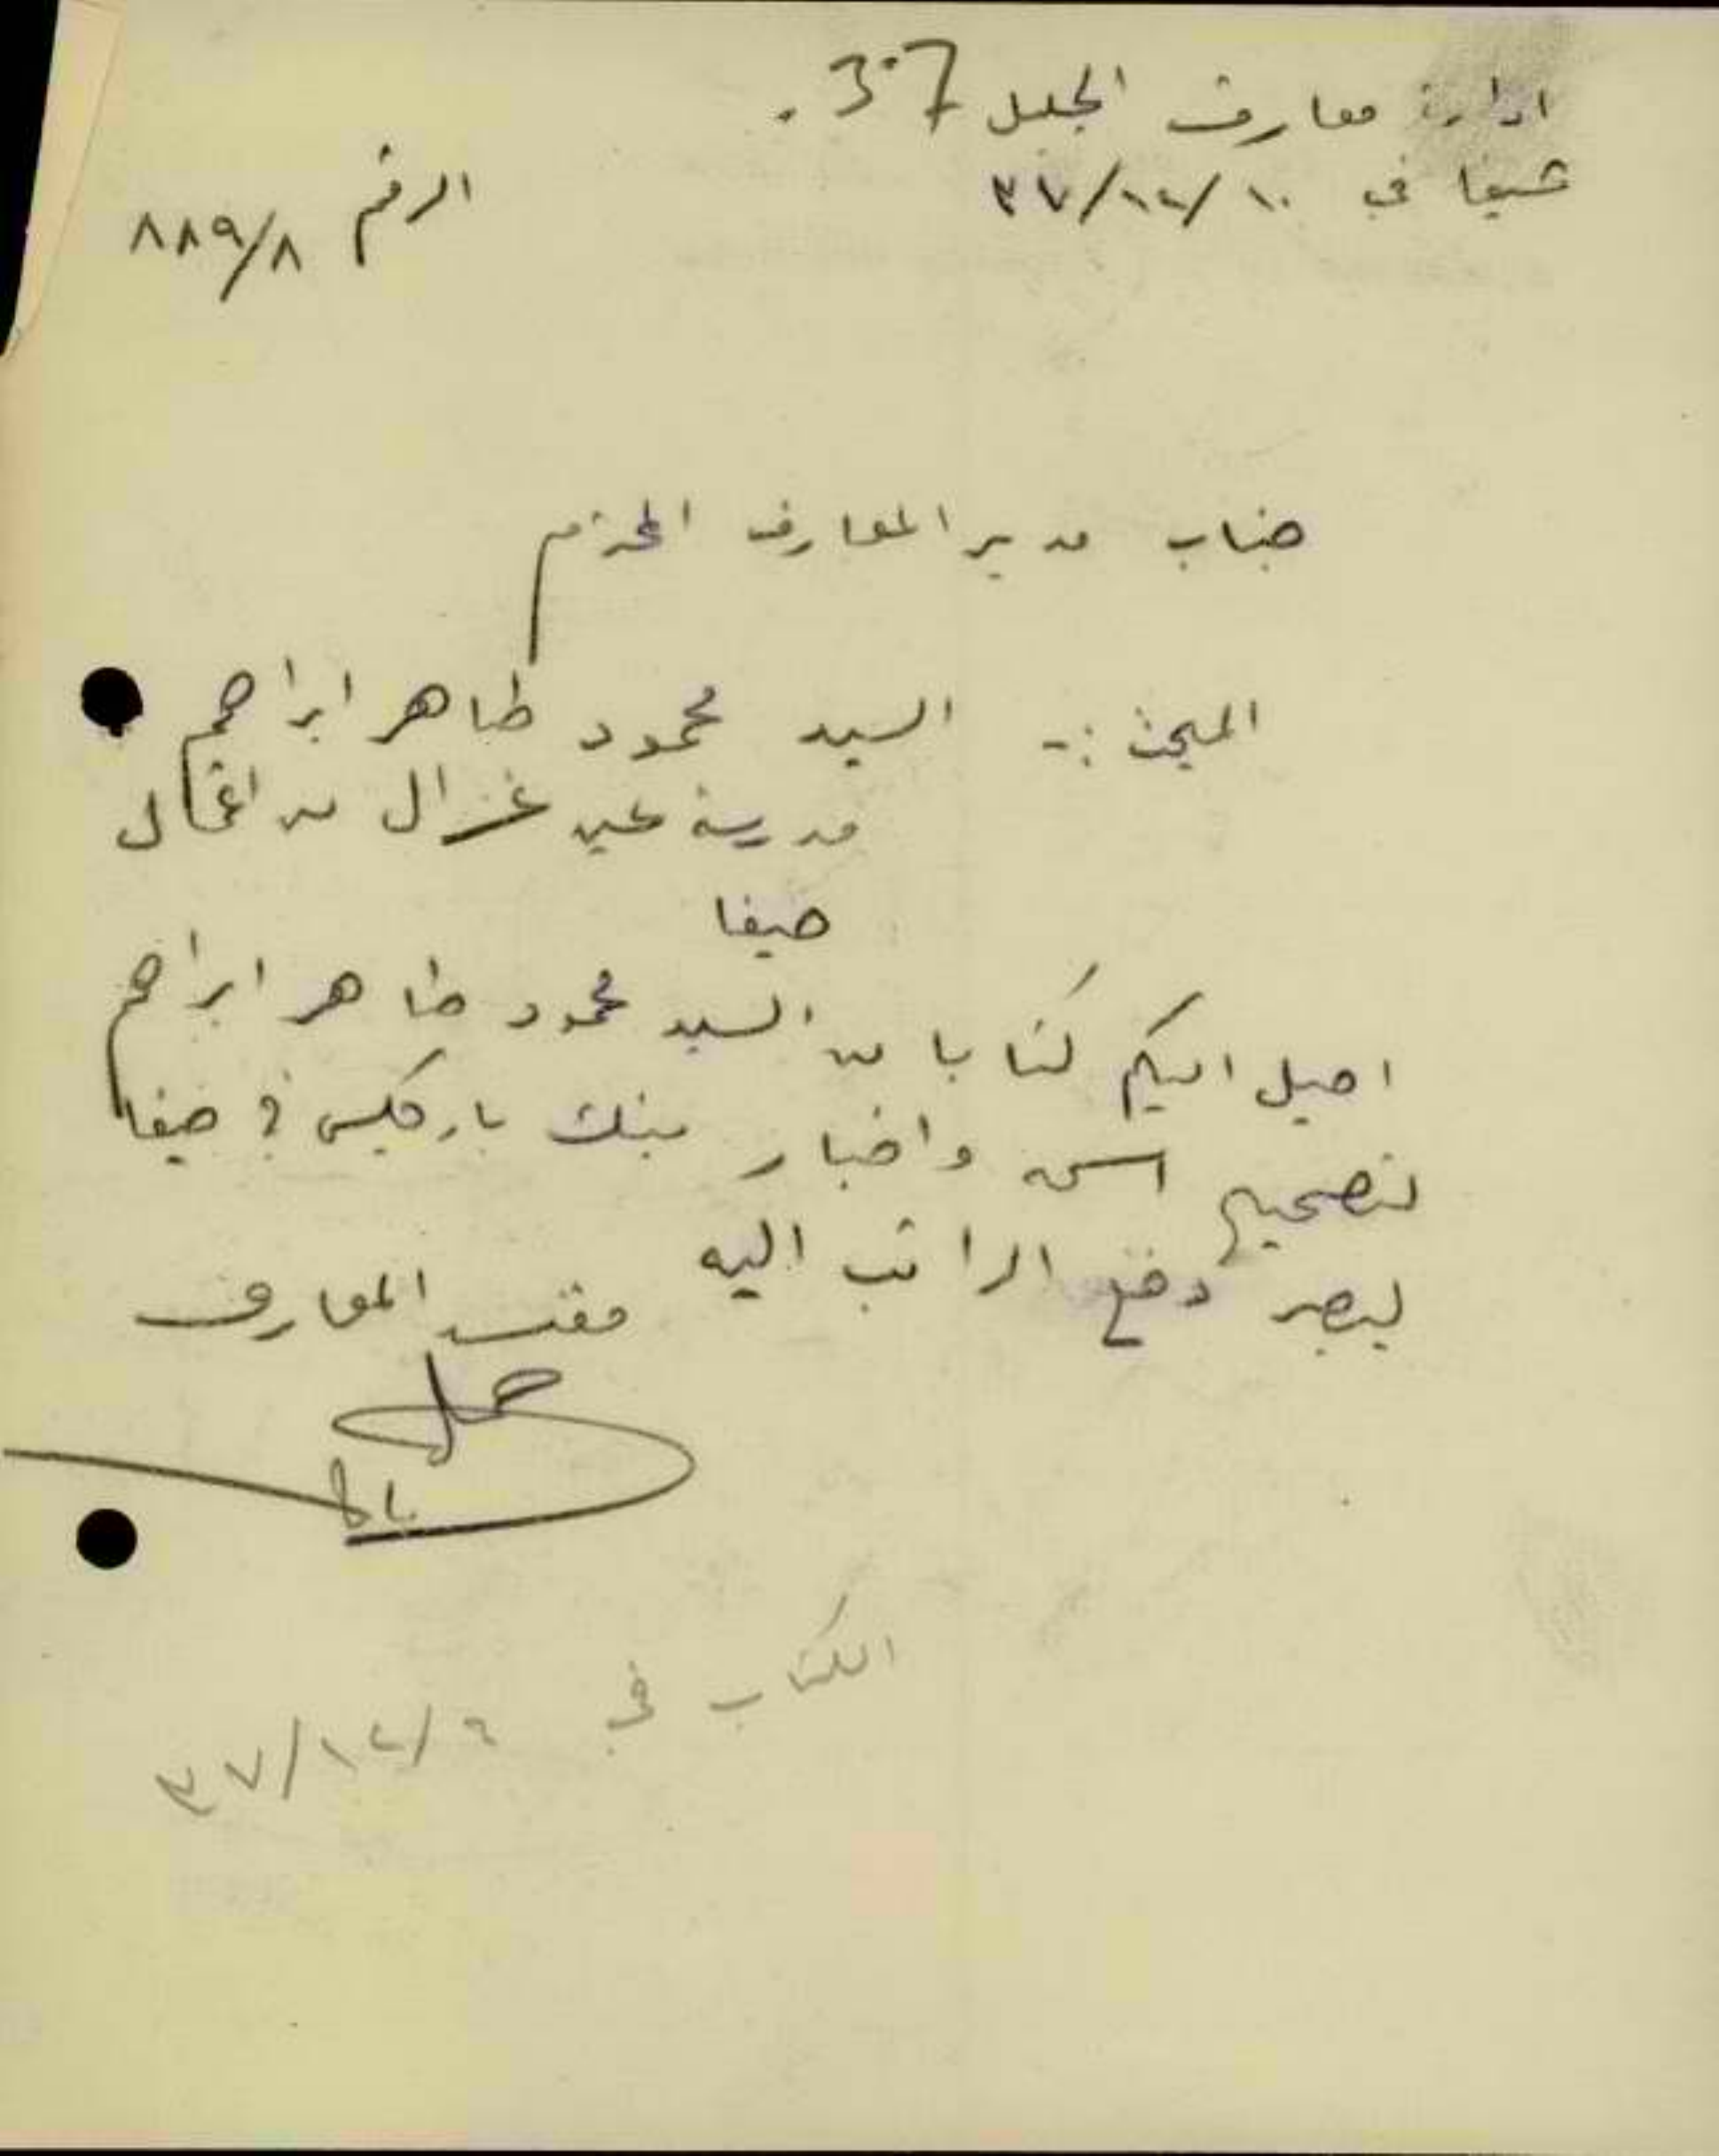 ادارة معارف الجليل 37.
حيفا في ١٠/١٢/٣٧
الرقم ٨٨٩/٨
جناب مدير المعارف المحترم
المبحث :- السيد محمود طاهر ابراهيم
مدرسة عين غزال من اعمال
حيفا
احيل اليكم كتابا من السيد محمود طاهر ابراهيم
لتصحيح اسمه واخبار بنك باركليس في حيفا
ليصير دفع الراتب اليه
مفتش المعارف
الكتاب في ٩/١٢/٣٧